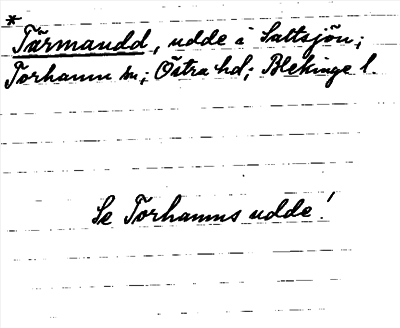 * Tärmaudd, udde i Saltsjön;
Torhamn sn; Östra hd; Blekinge l.
Se Torhamns udde!